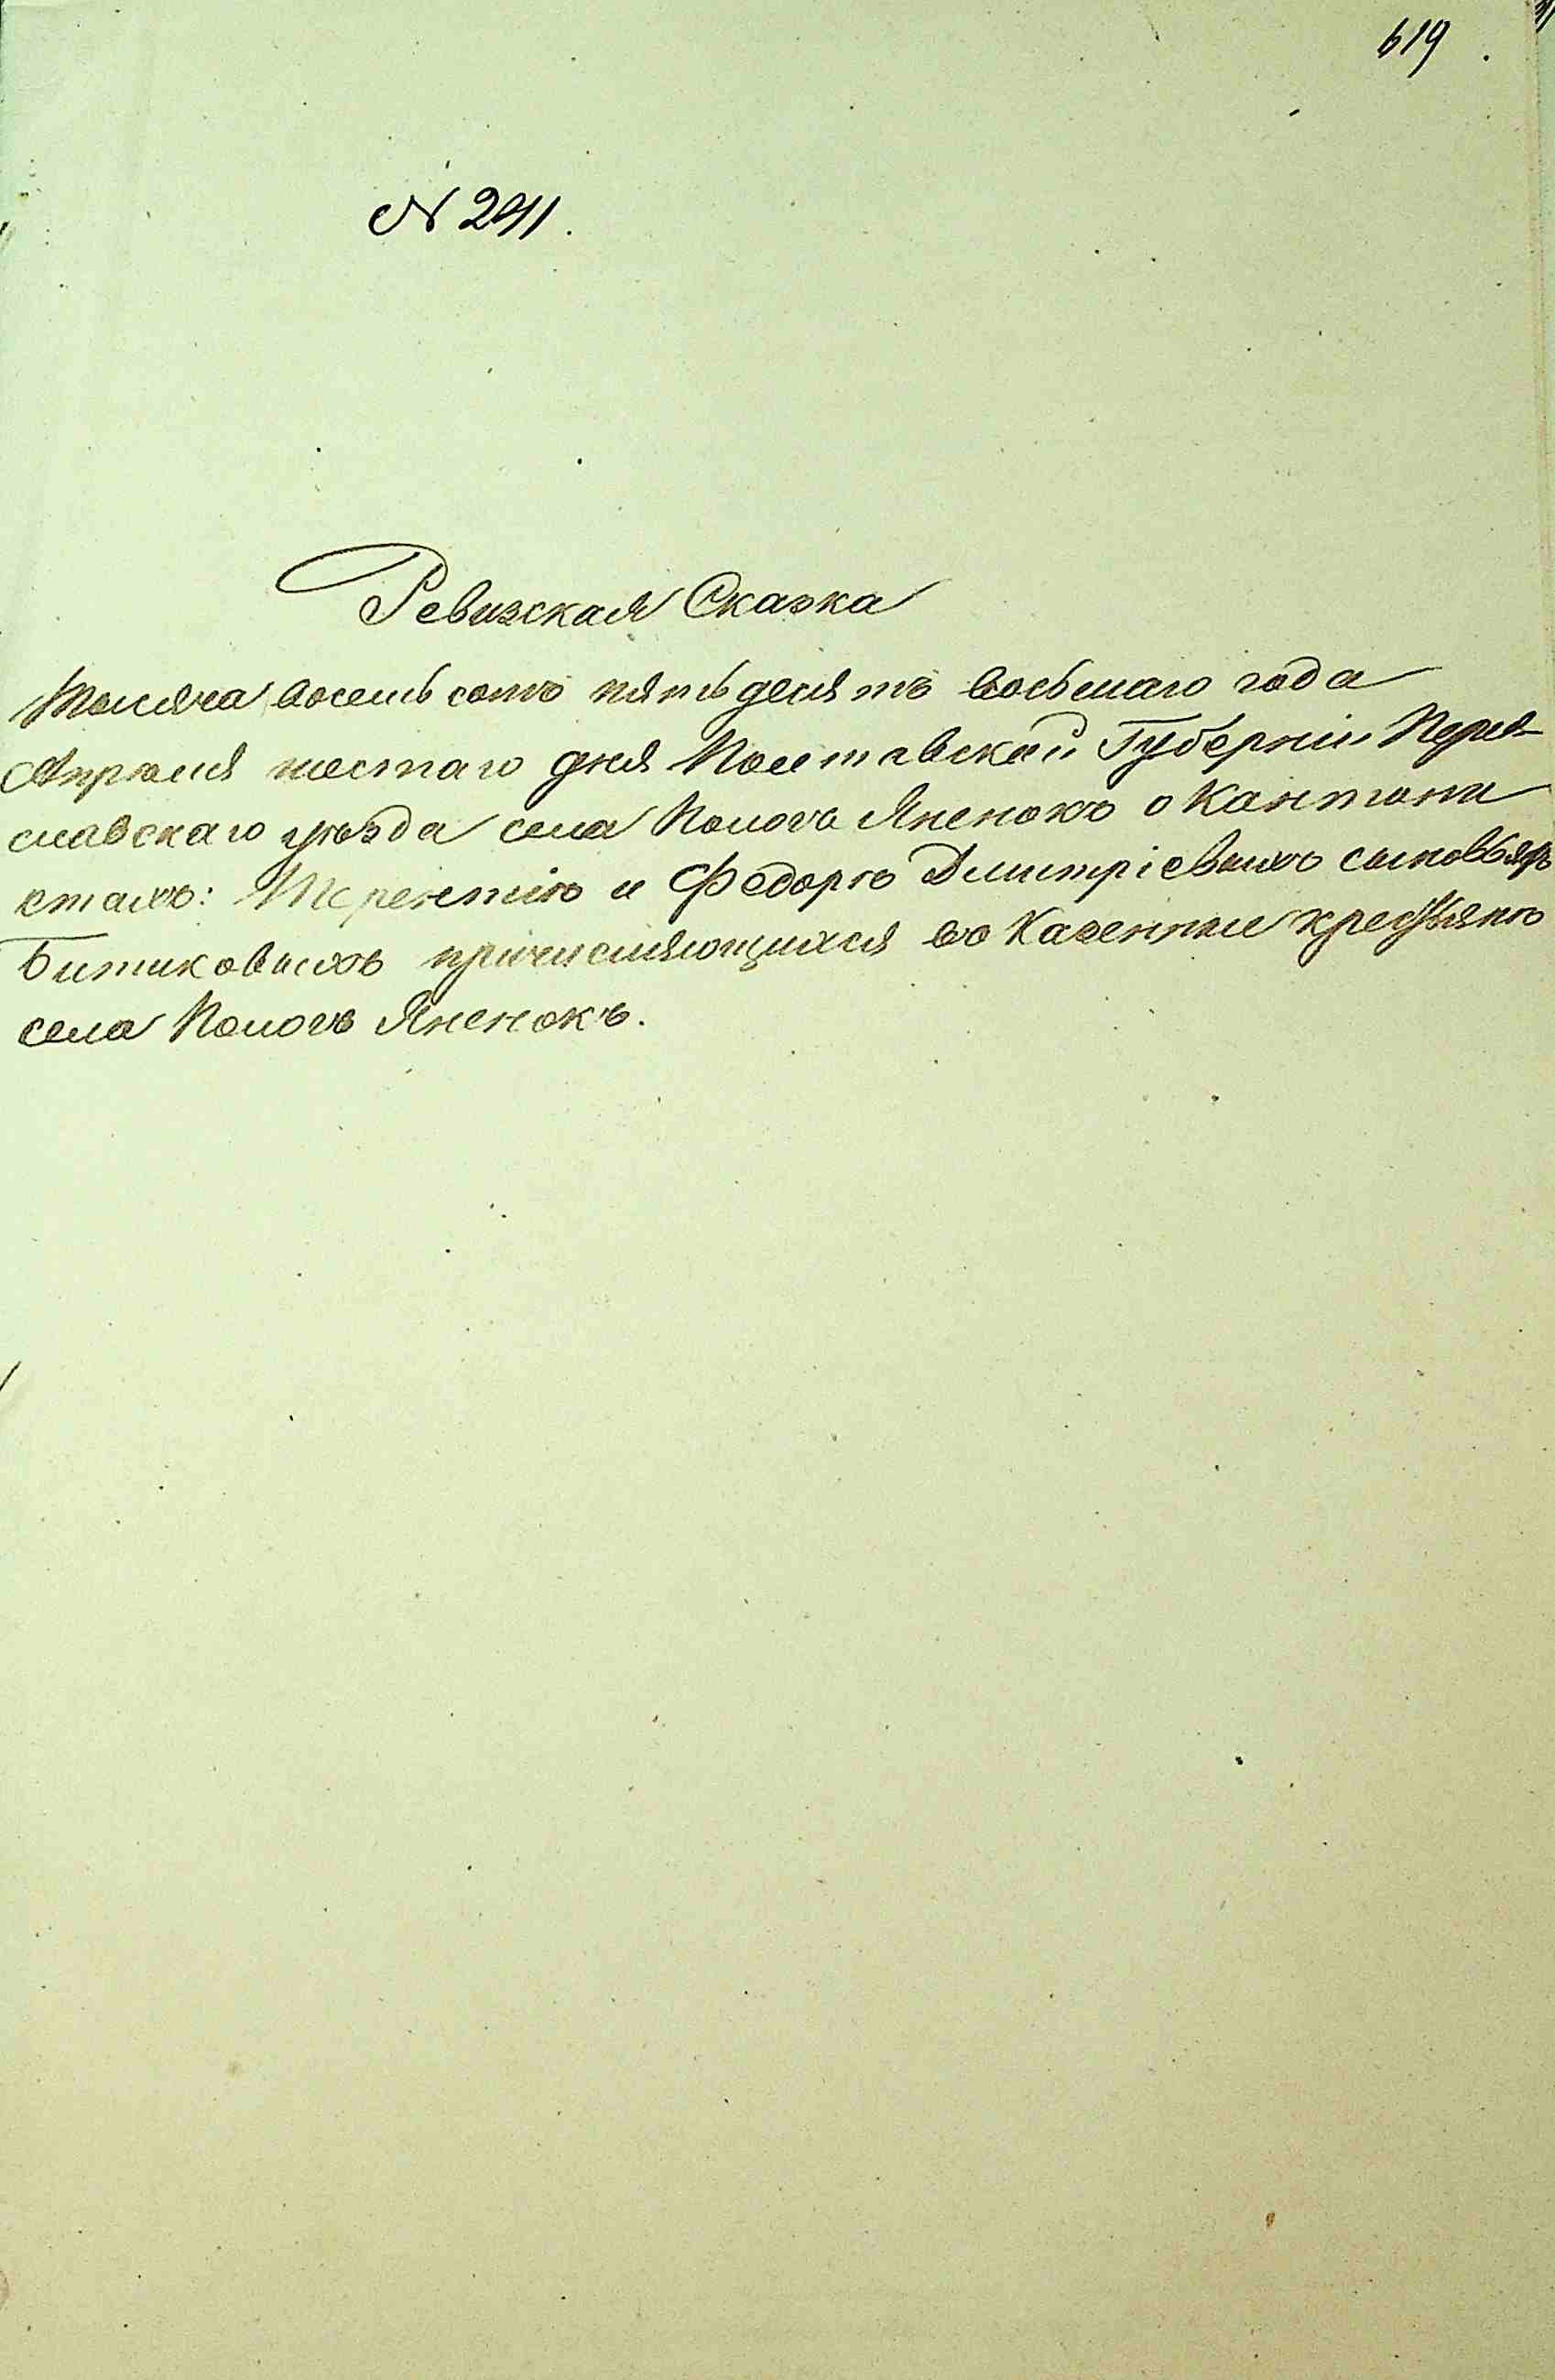 619
№ 241.
Ревизская Сказка
Тысяча восемь сотъ пятьдесятъ восьмаго года
Апреля шестаго дня Полтавской Губерніи Перея-
славскаго уѣзда села Пологъ Яненокъ о Кантони
стахъ: Терентію и Федорѣ Дмитріевыхъ сыновьяхъ
Битиковыхъ причисляющихся въ Казенные крестьяне
села Пологъ Яненокъ.